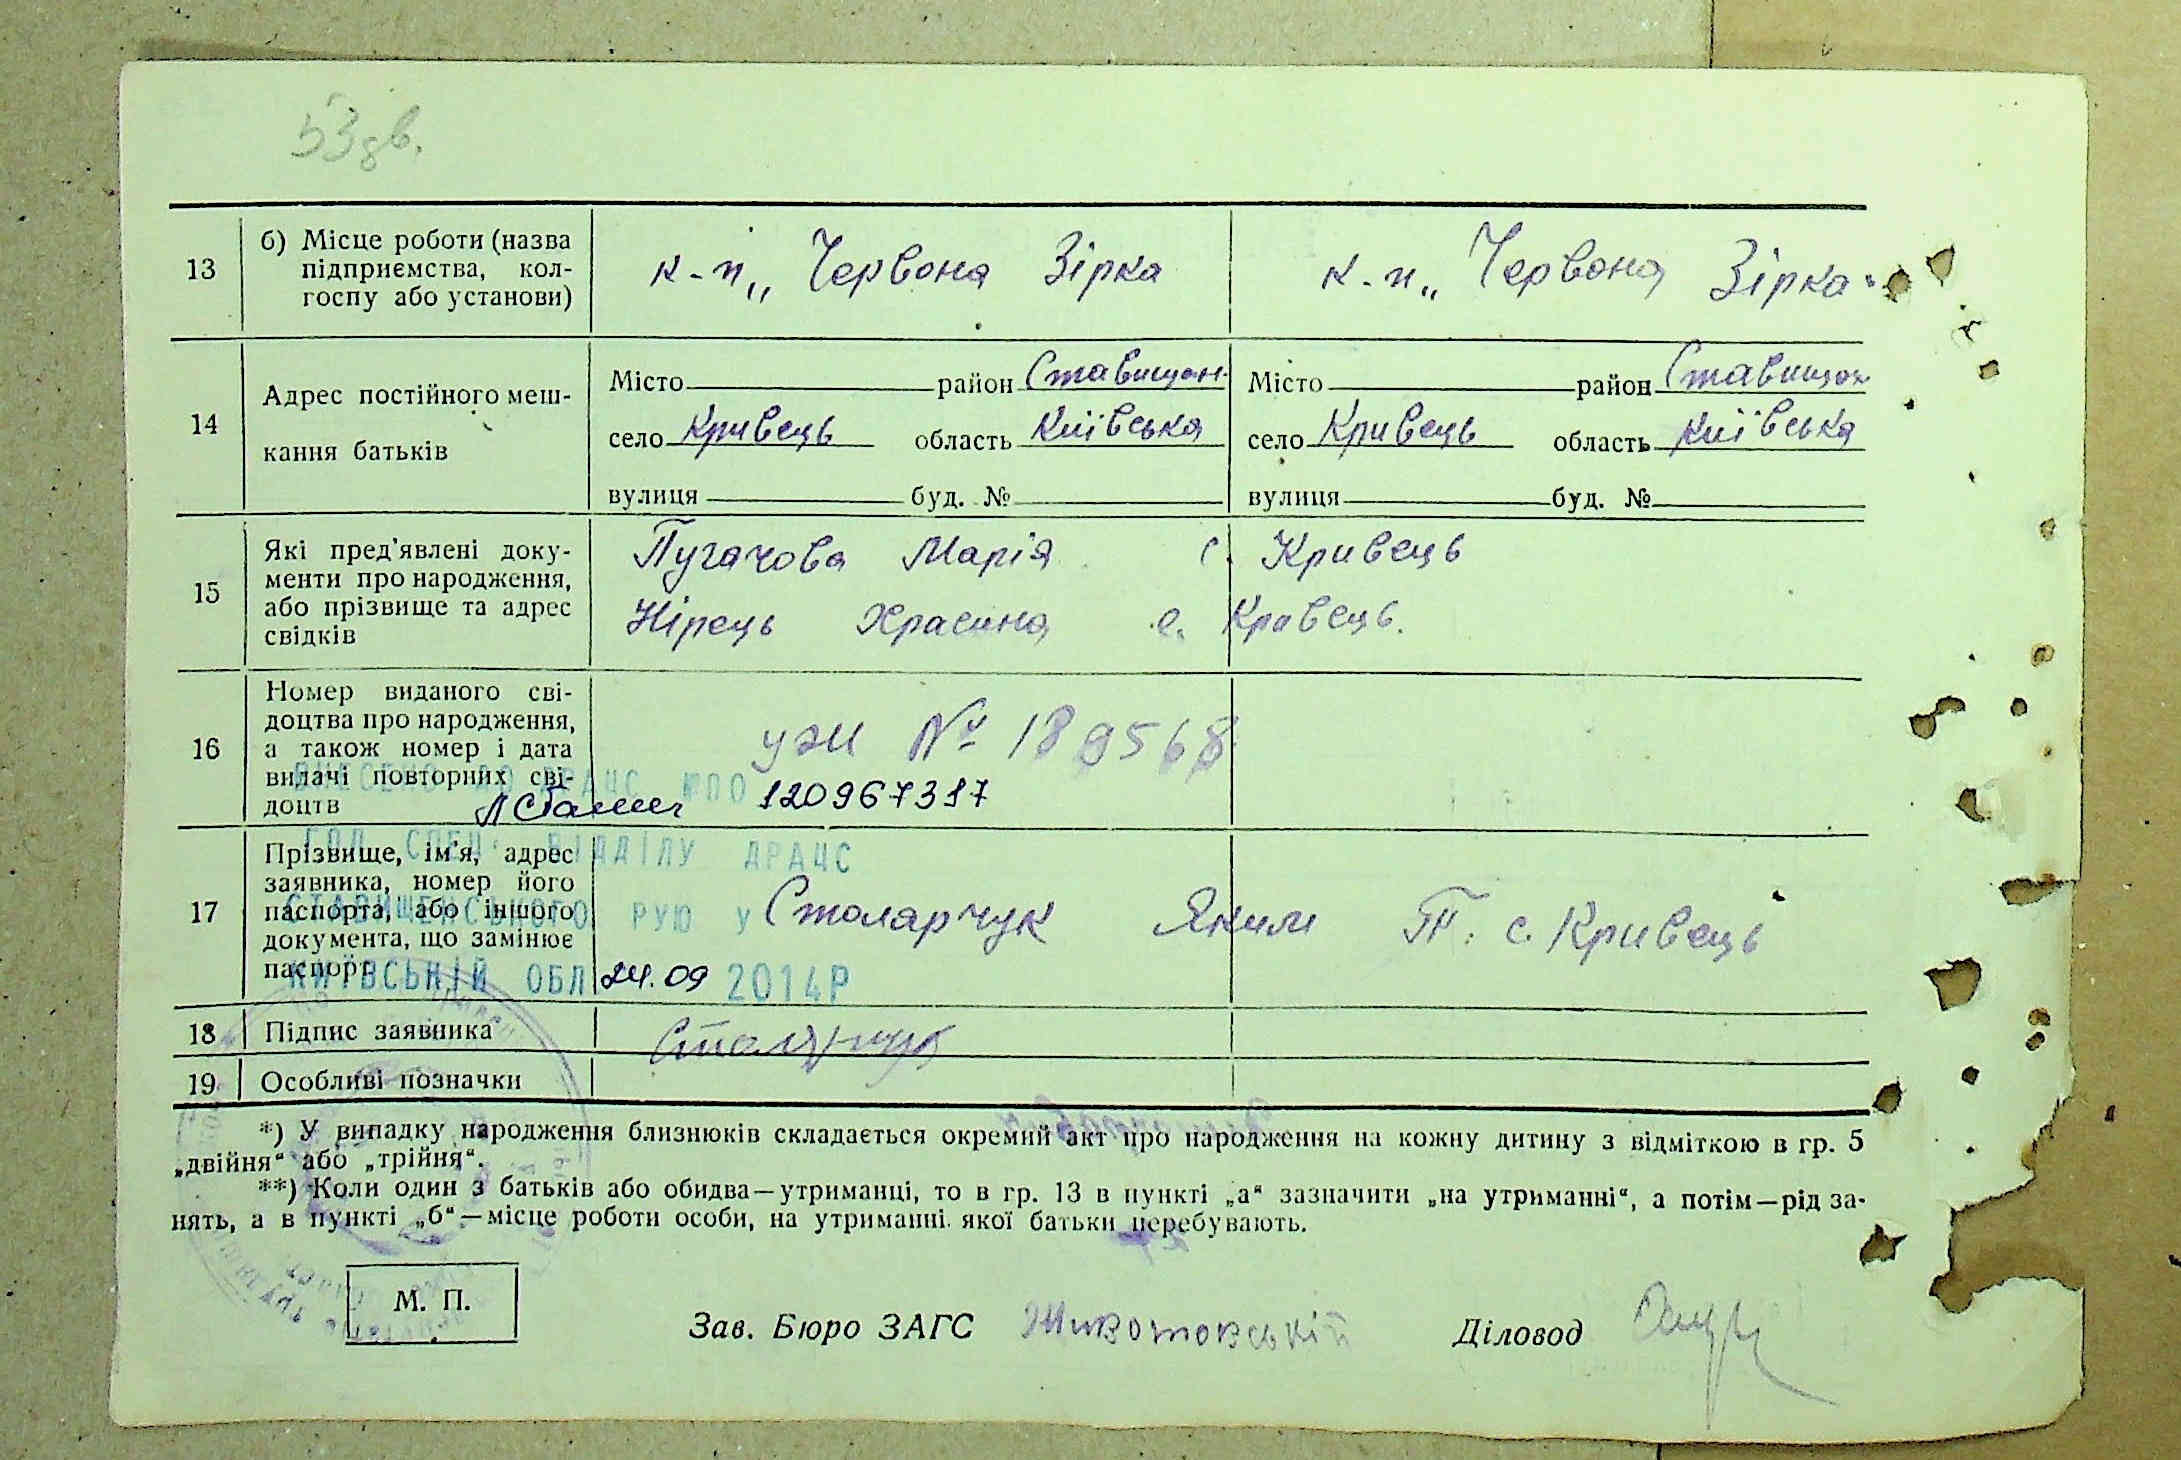 53 зв.
13
б) Місце роботи (назва
підприємства, кол-
госпу або установи)
к-п „Червона Зірка
к-п „Червона Зірка"
14
Адрес постійного меш-
кання батьків
Місто район Ставищан.
село Кривець область Київська
вулиця буд. №
Місто район Ставищан
село Кривець область Київська
вулиця буд. №
15
Які пред'явлені доку-
менти про народження,
або прізвище та адрес
свідків
Пугачова Марія с. Кривець
Нірець Храсина с. Кривець.
16
Номер виданого сві-
доцтва про народження,
а також номер і дата
видачі повторних сві-
доцтв
ужи № 189568
120967317
ВНЕСЕНО ДО ДРАЦС №ПО
17
Прізвище, ім'я, адрес
заявника, номер його
паспорта, або іншого
документа, що замінює
паспорт
ГОЛ СПЕЦ. ВІДДІЛУ ДРАЦС
СТАВИЩЕНСЬКОГО РУЮ У
КИЇВСЬКІЙ ОБЛ 24.09 2014Р
Столарчук Яким Т. с. Кривець
18
Підпис заявника
Столярчук
19
Особливі позначки
*) У випадку народження близнюків складається окремий акт про народження на кожну дитину з відміткою в гр. 5
„двійня" або „трійня".
**) Коли один з батьків або обидва—утриманці, то в гр. 13 в пункті „а" зазначити „на утриманні", а потім—рід за-
нять, а в пункті „б"—місце роботи особи, на утриманні якої батьки перебувають.
М. П.
Зав. Бюро ЗАГС Животовський
Діловод